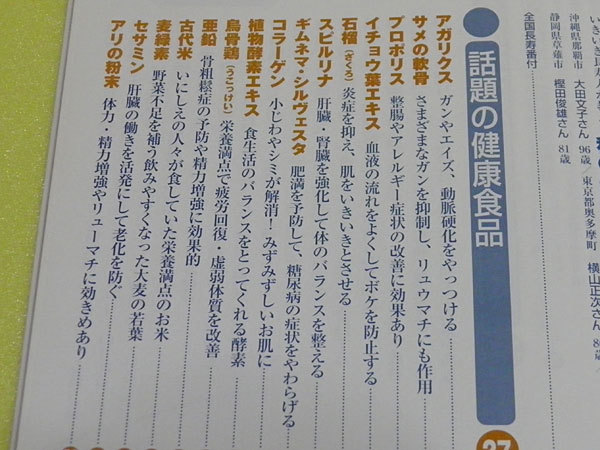 全国長寿番付
沖縄県那覇市 大田文子さん 96歳／東京都奥多摩町 横山正次さん
静岡県草薙市 樫田俊雄さん 81歳
話題の健康食品
アガリクス ガンやエイズ、動脈硬化をやっつける
サメの軟骨 さまざまなガンを抑制し、リュウマチにも作用
プロポリス 整腸やアレルギー症状の改善に効果あり
イチョウ葉エキス 血液の流れをよくしてボケを防止する
石榴(ざくろ) 炎症を抑え、肌をいきいきとさせる
スピルリナ 肝臓・腎臓を強化して体のバランスを整える
ギムネマ・シルヴェスタ 肥満を予防して、糖尿病の症状をやわらげる
コラーゲン 小じわやシミが解消！みずみずしいお肌に
植物酵素エキス 食生活のバランスをとってくれる酵素
烏骨鶏(うこっけい) 栄養満点で疲労回復・虚弱体質を改善
亜鉛 骨粗鬆症の予防や精力増強に効果的
古代米 いにしえの人々が食していた栄養満点のお米
麦緑素 野菜不足を補う飲みやすくなった大麦の若葉
セサミン 肝臓の働きを活発にして老化を防ぐ
アリの粉末 体力・精力増強やリューマチに効きめあり
27